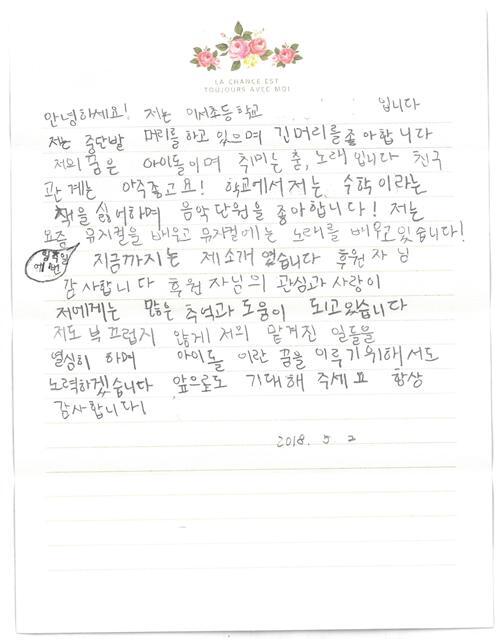 LA CHANCE EST
TOUJOURS AVEC MOI
안녕하세요! 저는 이서초등학교 입니다
저는 중단발 머리를 하고 있으며 긴머리를 좋아합니다
저의 꿈은 아이돌이며 취미는 춤, 노래 입니다 친구
관계는 아주좋고요! 학교에서 저는 수학 이라는
책을 싫어하며 음악 단원을 좋아합니다! 저는
요즘 뮤지컬을 배우고 뮤지컬에는 노래를 배우고있습니다!
일주일
에 1번
지금까지는 제소개 였습니다 후원 자 님
감사합니다 후원 자님의 관심과 사랑이
저에게는 많은 추억과 도움이 되고있습니다
저도 부끄럽지 않게 저의 맡겨진 일들을
열심히 하며 아이돌 이란 꿈을 이루기위해서도
노력하겠습니다 앞으로도 기대해 주세요 항상
감사합니다!
2018. 5 2